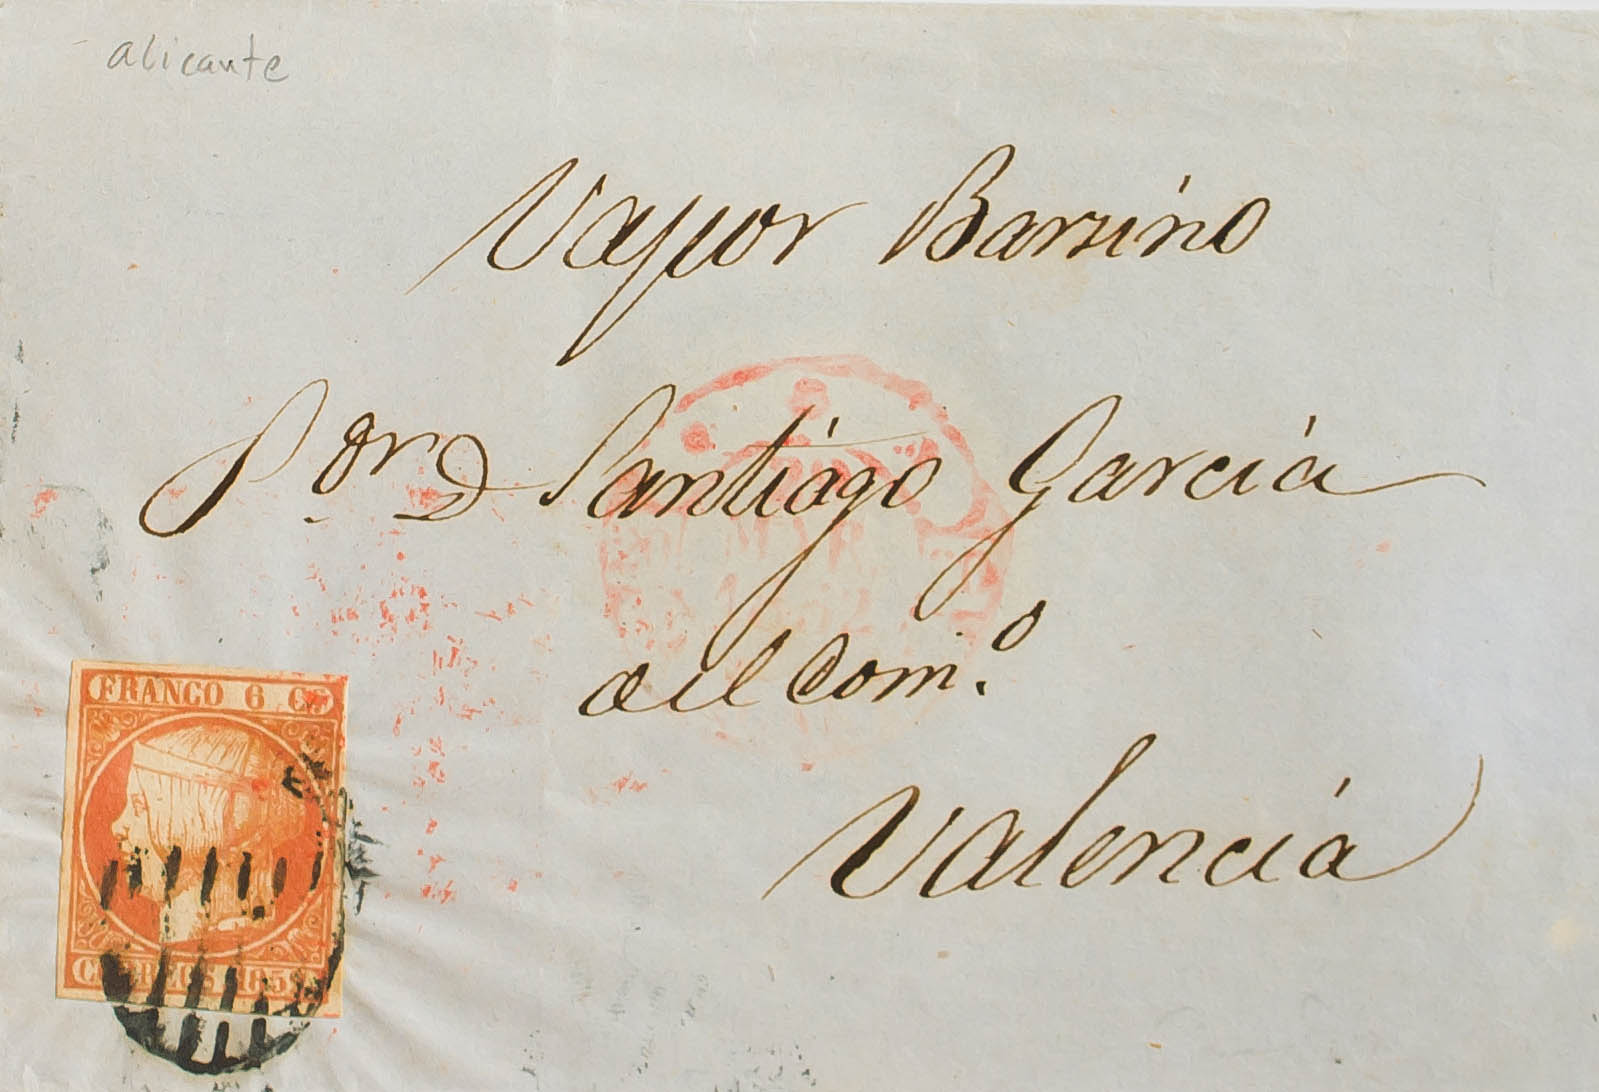 alicante
Vapor Barsino
Sor. D Santiago Garcia
del Com.o
Valencia
FRANCO 6 Cs
CORREOS 1852